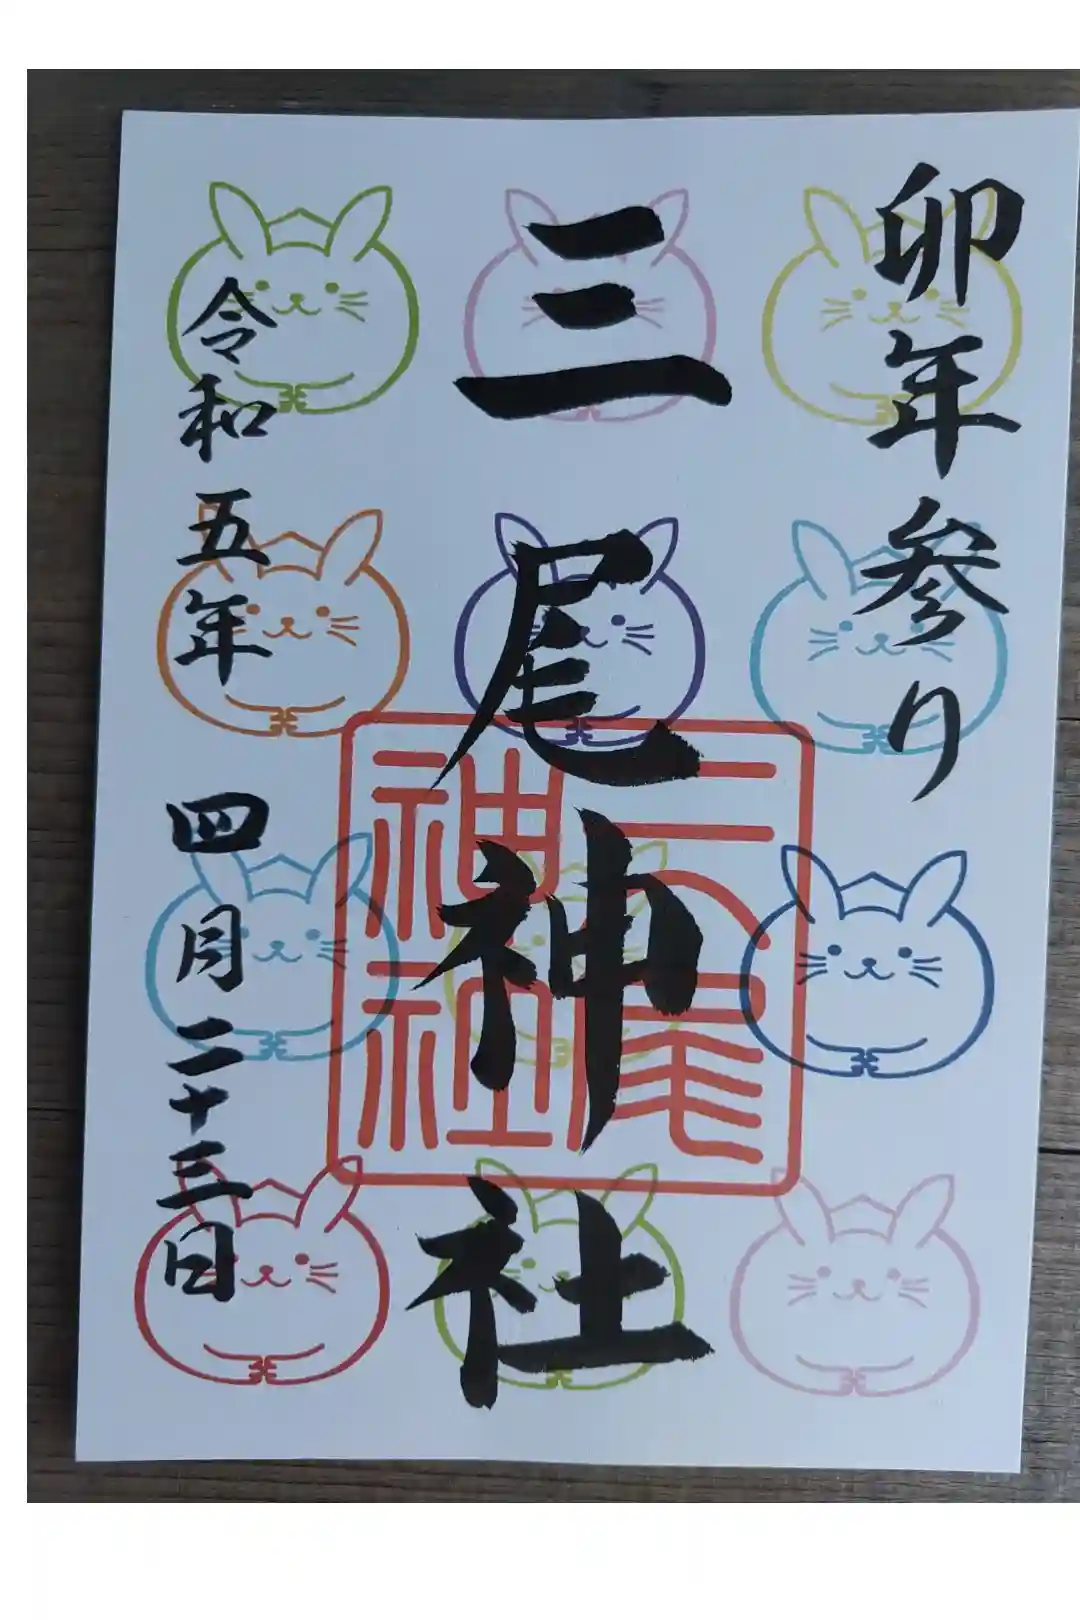 卯年参り
三尾神社
三尾
神社
令和五年四月二十三日